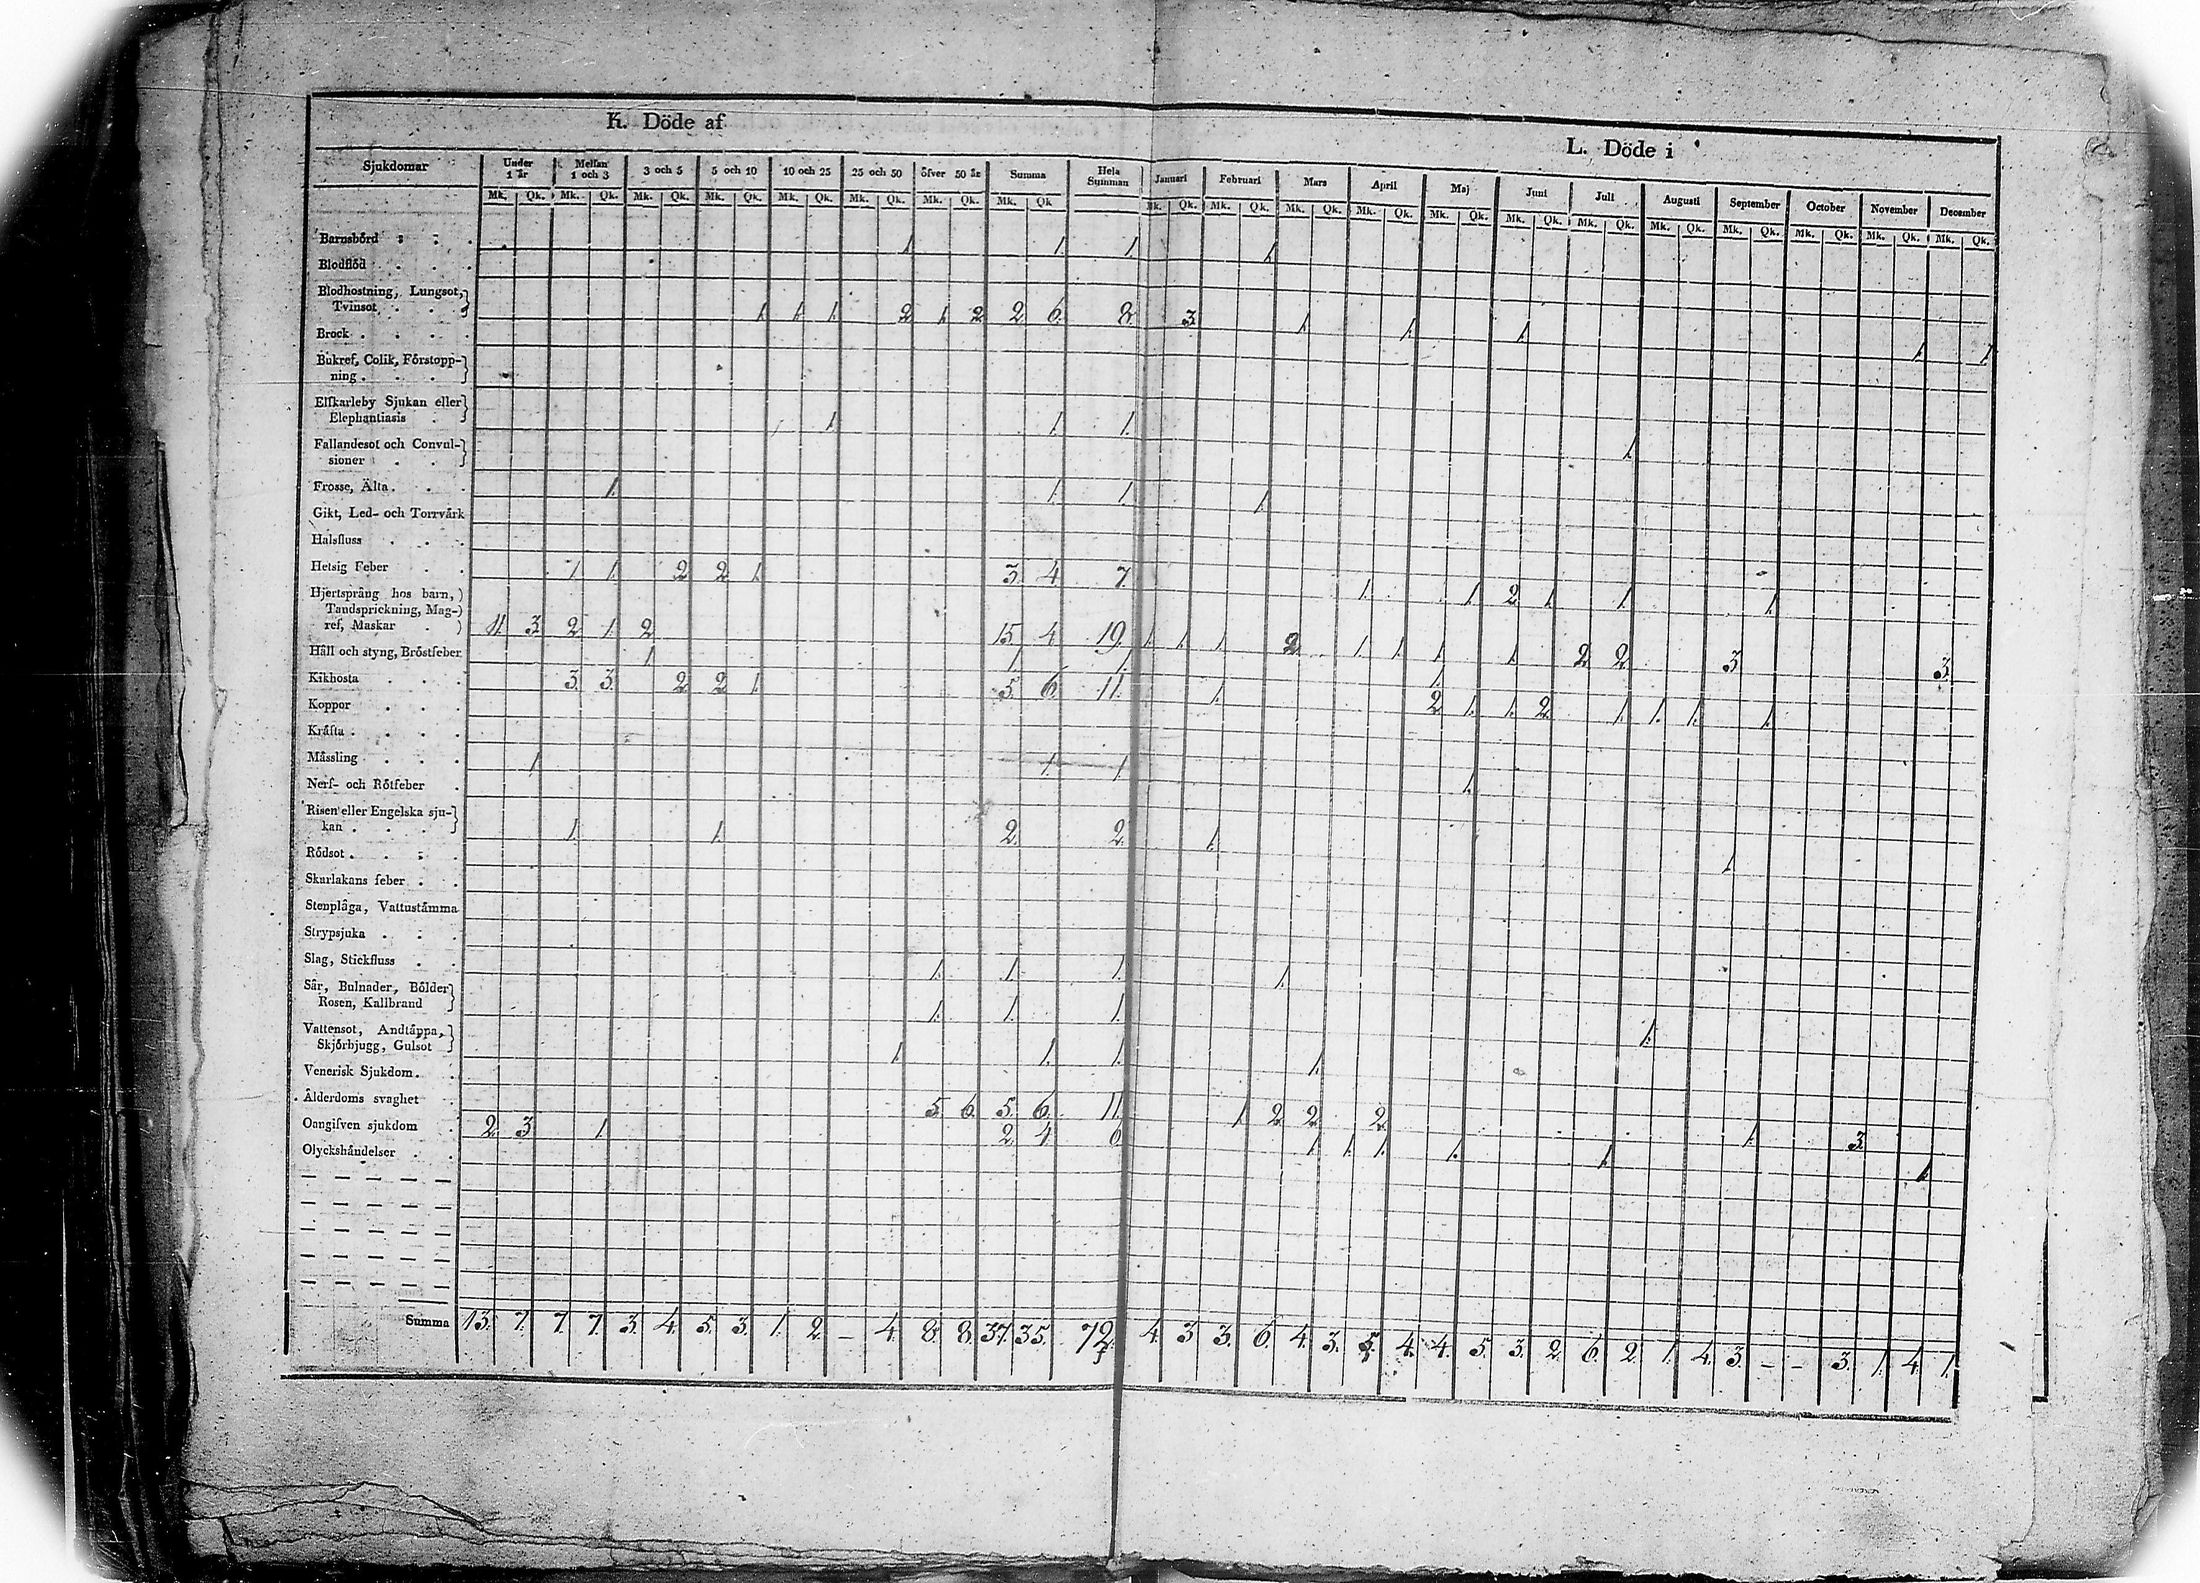 K. Döde af
L. Döde i
Sjukdomar Under 1 år Mellan 1 och 3 3 och 5 5 och 10 10 och 25 25 och 50 öfver 50 år Summa Hela Summan Januari Februari Mars April Maj Juni Juli Augusti September October November December
Mk. Qk. Mk. Qk. Mk. Qk. Mk. Qk. Mk. Qk. Mk. Qk. Mk. Qk. Mk. Qk Mk. Qk. Mk. Qk. Mk. Qk. Mk. Qk. Mk. Qk. Mk. Qk. Mk. Qk. Mk. Qk. Mk. Qk. Mk. Qk. Mk. Qk. Mk. Qk.
Barnsbörd 1 1. 1. 1.
Blodflöd
Blodhostning, Lungsot,
Tvinsot 1. 1. 1. 2 1. 2 2 6. 8. 3. 1. 1. 1. 1. 1
Brock
Bukref, Colik, Förstopp-
ning
Elfkarleby Sjukan eller
Elephantiasis 1. 1. 1. 1.
Fallandesot och Convul-
sioner
Frosse, Älta 1. 1. 1. 1.
Gikt, Led- och Torrvärk
Halsfluss
Hetsig Feber 1 1. 2 2 1. 3. 4 7. 1. 1. 2 1. 1. 1.
Hjertsprång hos barn,
Tandsprickning, Mag-
ref, Maskar 11. 3. 2. 1. 2 15 4 19. 1. 1. 1. 2. 1. 1. 1. 1. 2 2. 3. 3.
Håll och styng, Bröstfeber 1 1. 1. 1.
Kikhosta 3. 3. 2. 2. 1. 5. 6. 11. 1. 2. 1. 1. 2. 1. 1. 1. 1.
Koppor
Kräfta
Mässling 1 1. 1 1.
Nerf- och Rötfeber
Risen eller Engelska sju-
kan 1. 1. 2. 2. 1. 1.
Rödsot
Skarlakans feber
Stenplåga, Vattustämma
Strypsjuka
Slag, Stickfluss 1. 1. 1. 1.
Sår, Bulnader, Bölder
Rosen, Kallbrand 1. 1. 1. 1.
Vattensot, Andtäppa,
Skjörbjugg, Gulsot 1. 1. 1. 1.
Venerisk Sjukdom
Ålderdoms svaghet 5. 6. 5. 6. 11. 1. 2. 2. 2. 1. 3.
Oangifven sjukdom 2. 3. 1. 2. 4 6. 1. 1. 1. 1. 1. 1.
Olyckshändelser
Summa 13. 7. 7. 7. 3. 4. 5. 3. 1. 2. – 4. 8. 8. 37. 35. 72. 4. 3. 3. 6. 4. 3. 5. 4. 4. 5. 3. 2. 6. 2. 1. 4. 3. – – 3. 1. 4. 1.